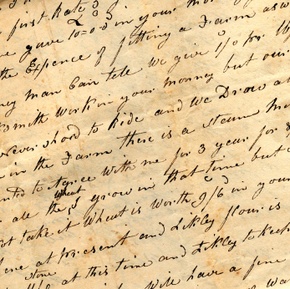 first Rate
we gave 10=0=0 in your mon
the Expence of fitting a Farm as w
ney man Can tell we give 1/0 for
Smith Work in your money but our
However Load to Ride and We Draw a
in the Farm there is a Steam
nted to Agree with me for 3 year for
all the wheat I grow in that time but
t take it Wheat is Worth 9/6 in your
ne at present and Likley flour is
Stone
at this time and Likley to keep
Will have a fine